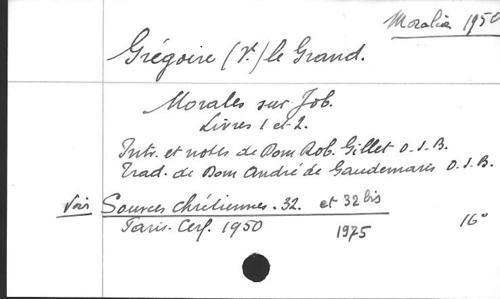 Moralia 1950
Grégoire (St.) le Grand.
Morales sur Job.
Livres 1 et 2.
Intr. et notes de Dom Rob. Gillet O.S.B.
Trad. de Dom André de Gaudemaris O.S.B.
Voir Sources chrétiennes. 32. et 32 bis
Paris. Cerf. 1950 1975 16°